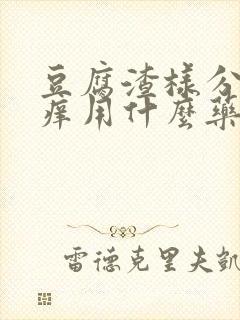 豆腐渣樣分
痒用什麼藥
雷德克里夫凱